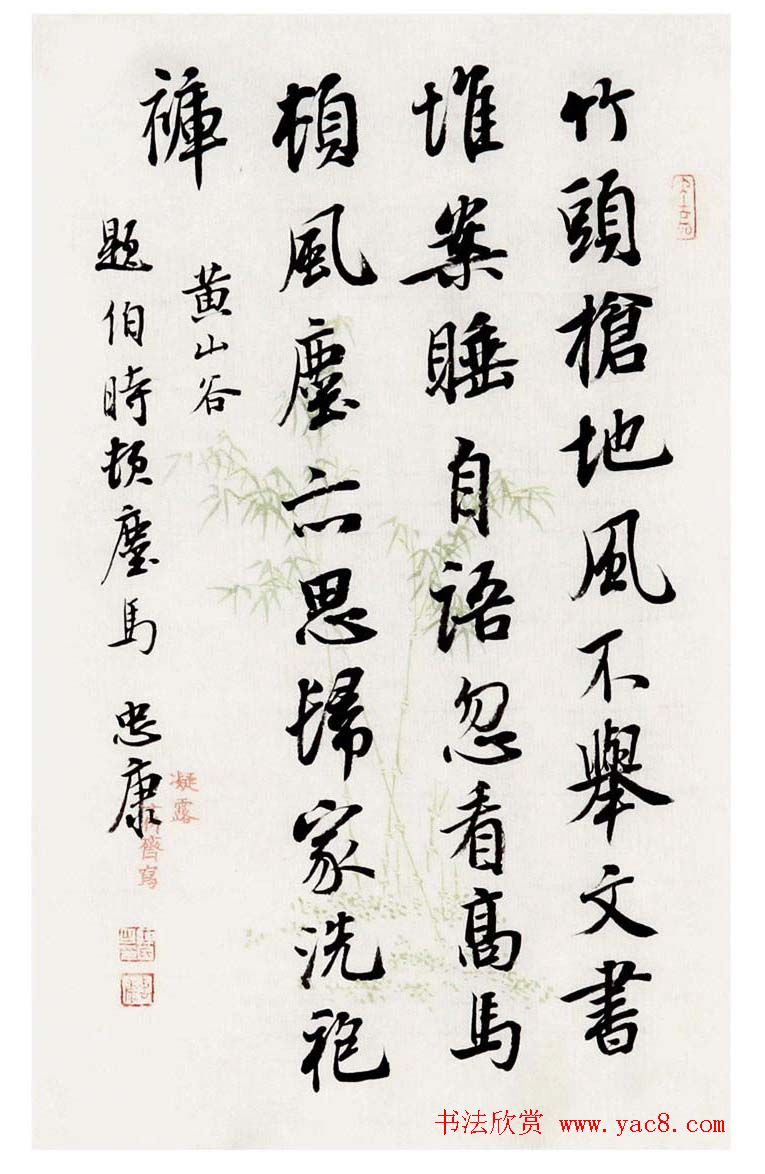 竹頭槍地風不舉文書
堆案睡自語忽看高馬
頓風塵亦思歸家洗袍
褲
黄山谷
題伯時頓塵馬 忠康
凝露
书法欣赏 www.yac8.com